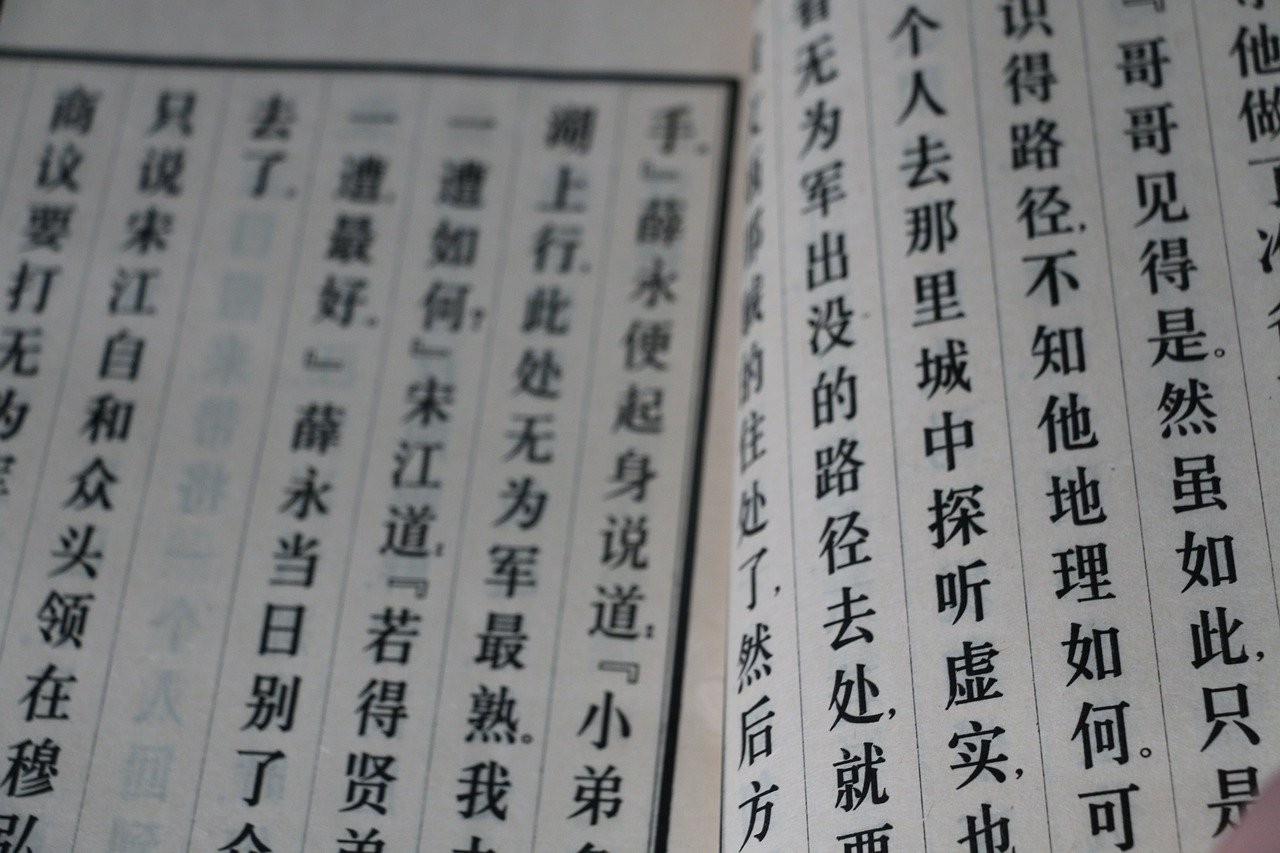 他做了
『哥哥见得是。然虽如此,只是
识得路径,不知他地理如何。可
个人去那里城中探听虚实,也
看无为军出没的路径去处,就要
的住处了,然后方
手。』薛永便起身说道:『小弟
湖上行。此处无为军最熟。我
一遭如何?』宋江道:『若得贤弟
一遭。最好。』薛永当日别了众
去了。
只说宋江自和众头领在穆弘
商议要打无为军